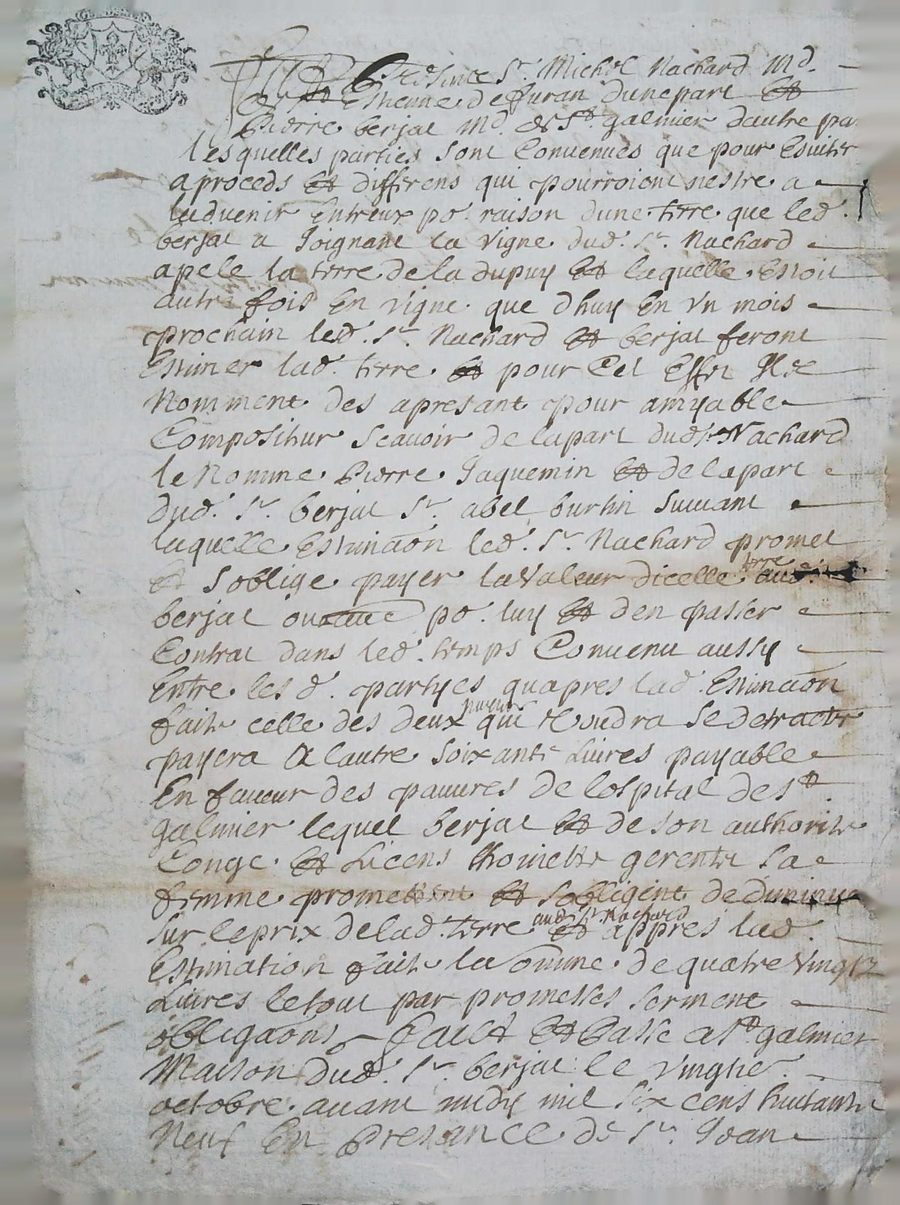 Sr. Michel Nachard Md.
de St Estienne de furan dunepart et
Pierre berjat Md. de St. galmier dautre par
lesquelles parties sont Convenues que pour Esuiter
a proceds et differens qui pourroient nestre a
ladvenir Entreux po. raison dune terre que led.
berjat a Joignant la vigne dud. Sr. Nachard
apele la terre de la dupuy et laquelle Estoit
autre fois En vigne que dhuy En vn mois
prochain led. Sr. Nachard et berjat feront
Estimer lad. terre et pour Cet Effet Ilz
Nomment des apresant pour amyable
Compositeur Scauoir de lapart dud. Sr. Nachard
le Nomme Pierre Jaquemin et de lapart
dud. Sr. berjat Sr. abel burlin Suiuant
laquelle Estimaōn led. Sr. Nachard promet
et Soblige payer la valeur dicelle terre aud.
berjat ou autre po. luy et den passer
Contrat dans led. temps Convenu aussy
Entre les d. partyes quapres lad. Estimaōn
faite celle des deux partyes qui voudra Se detracter
payera a lautre Soixante Livres payable
En faueur des pauures de lospital de St
galmier lequel berjat et de son authorite
Conge et Licens thoinette gerente sa
femme promettent et sobligent de diminuer
sur le prix de lad. terre aud. Sr. Nachard et appres lad.
Estimation faite la Somme de quatre vingtz
Livres le tout par promesses serment
obligaōns Faict et Passe a St. galmier
Maison dud. Sr. berjat le vingtie.
octobre auant midy mil Six cens huitante
Neuf En presance de Sr. Jean